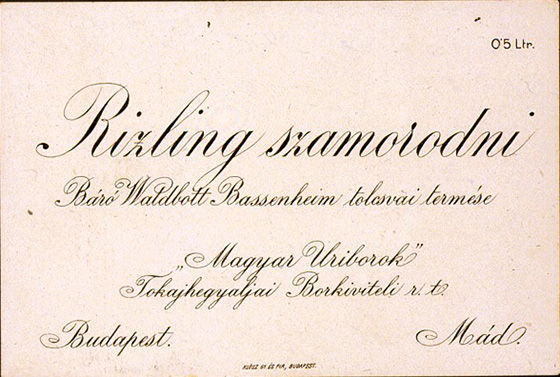 0'5 Ltr.
Rizling szamorodni
Báró Waldbott Bassenheim tolcsvai termése
„Magyar Uriborok”
Tokajhegyaljai Borkiviteli r. t.
Budapest. Mád.
BUDAPEST.